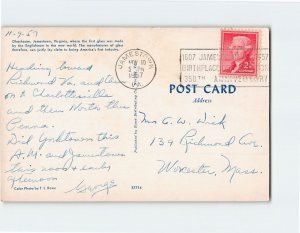 11-9-57
Glasshouse, Jamestown, Virginia, where the first glass was made
by the Englishmen in the new world. The manufacturers of glass
therefore, can justly lay claim to being America's first industry.
Heading toward
Richmond Va. and then
on to Charlottesville
and then North thru
Penna.
Did Yorktown this
A.M. and Jamestown
this noon & early
afternoon
George
Color Photo by
JAMESTOWN
NOV 10
PM
1957
VA.
1607 JAMESTOWN 1957
BIRTHPLACE
350TH ANNIVERSARY
2¢
POST CARD
Address
Mrs G. W. Wick
139 Richmond Ave.
Worcester, Mass.